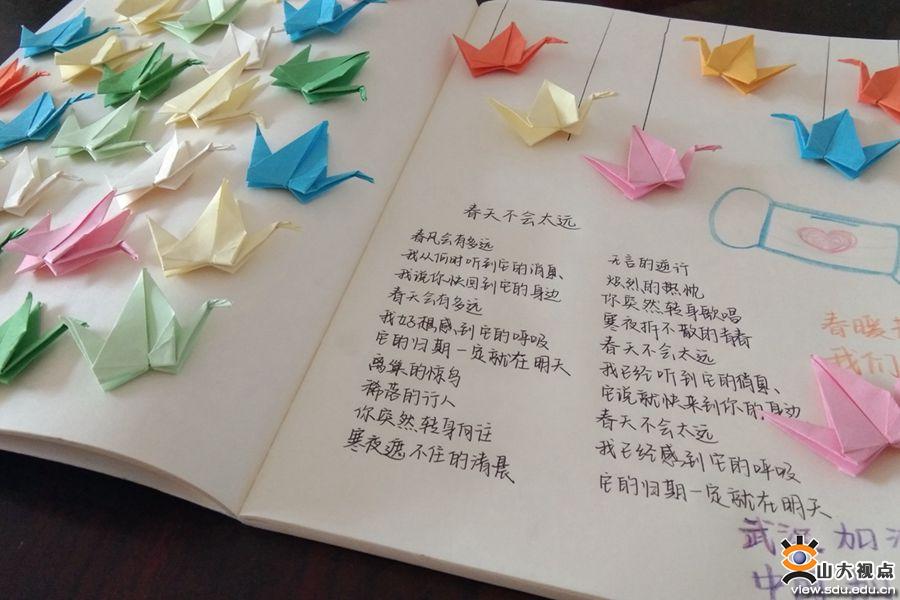 春天不会太远
春天会有多远
我从何时听到它的消息、
我说你快回到它的身边
春天会有多远
我好想感到它的呼吸
它的归期一定就在明天
离巢的惊鸟
稀落的行人
你突然转身向往
寒夜遮不住的清晨
无言的逆行
炽烈的热忱
你突然转身歌唱
寒夜拆不散的青春
春天不会太远
我已经听到它的消息、
它说就快来到你的身边
春天不会太远
我已经感到它的呼吸
它的归期一定就在明天
春暖
我们
武汉加油
山大视点
view.sdu.edu.cn